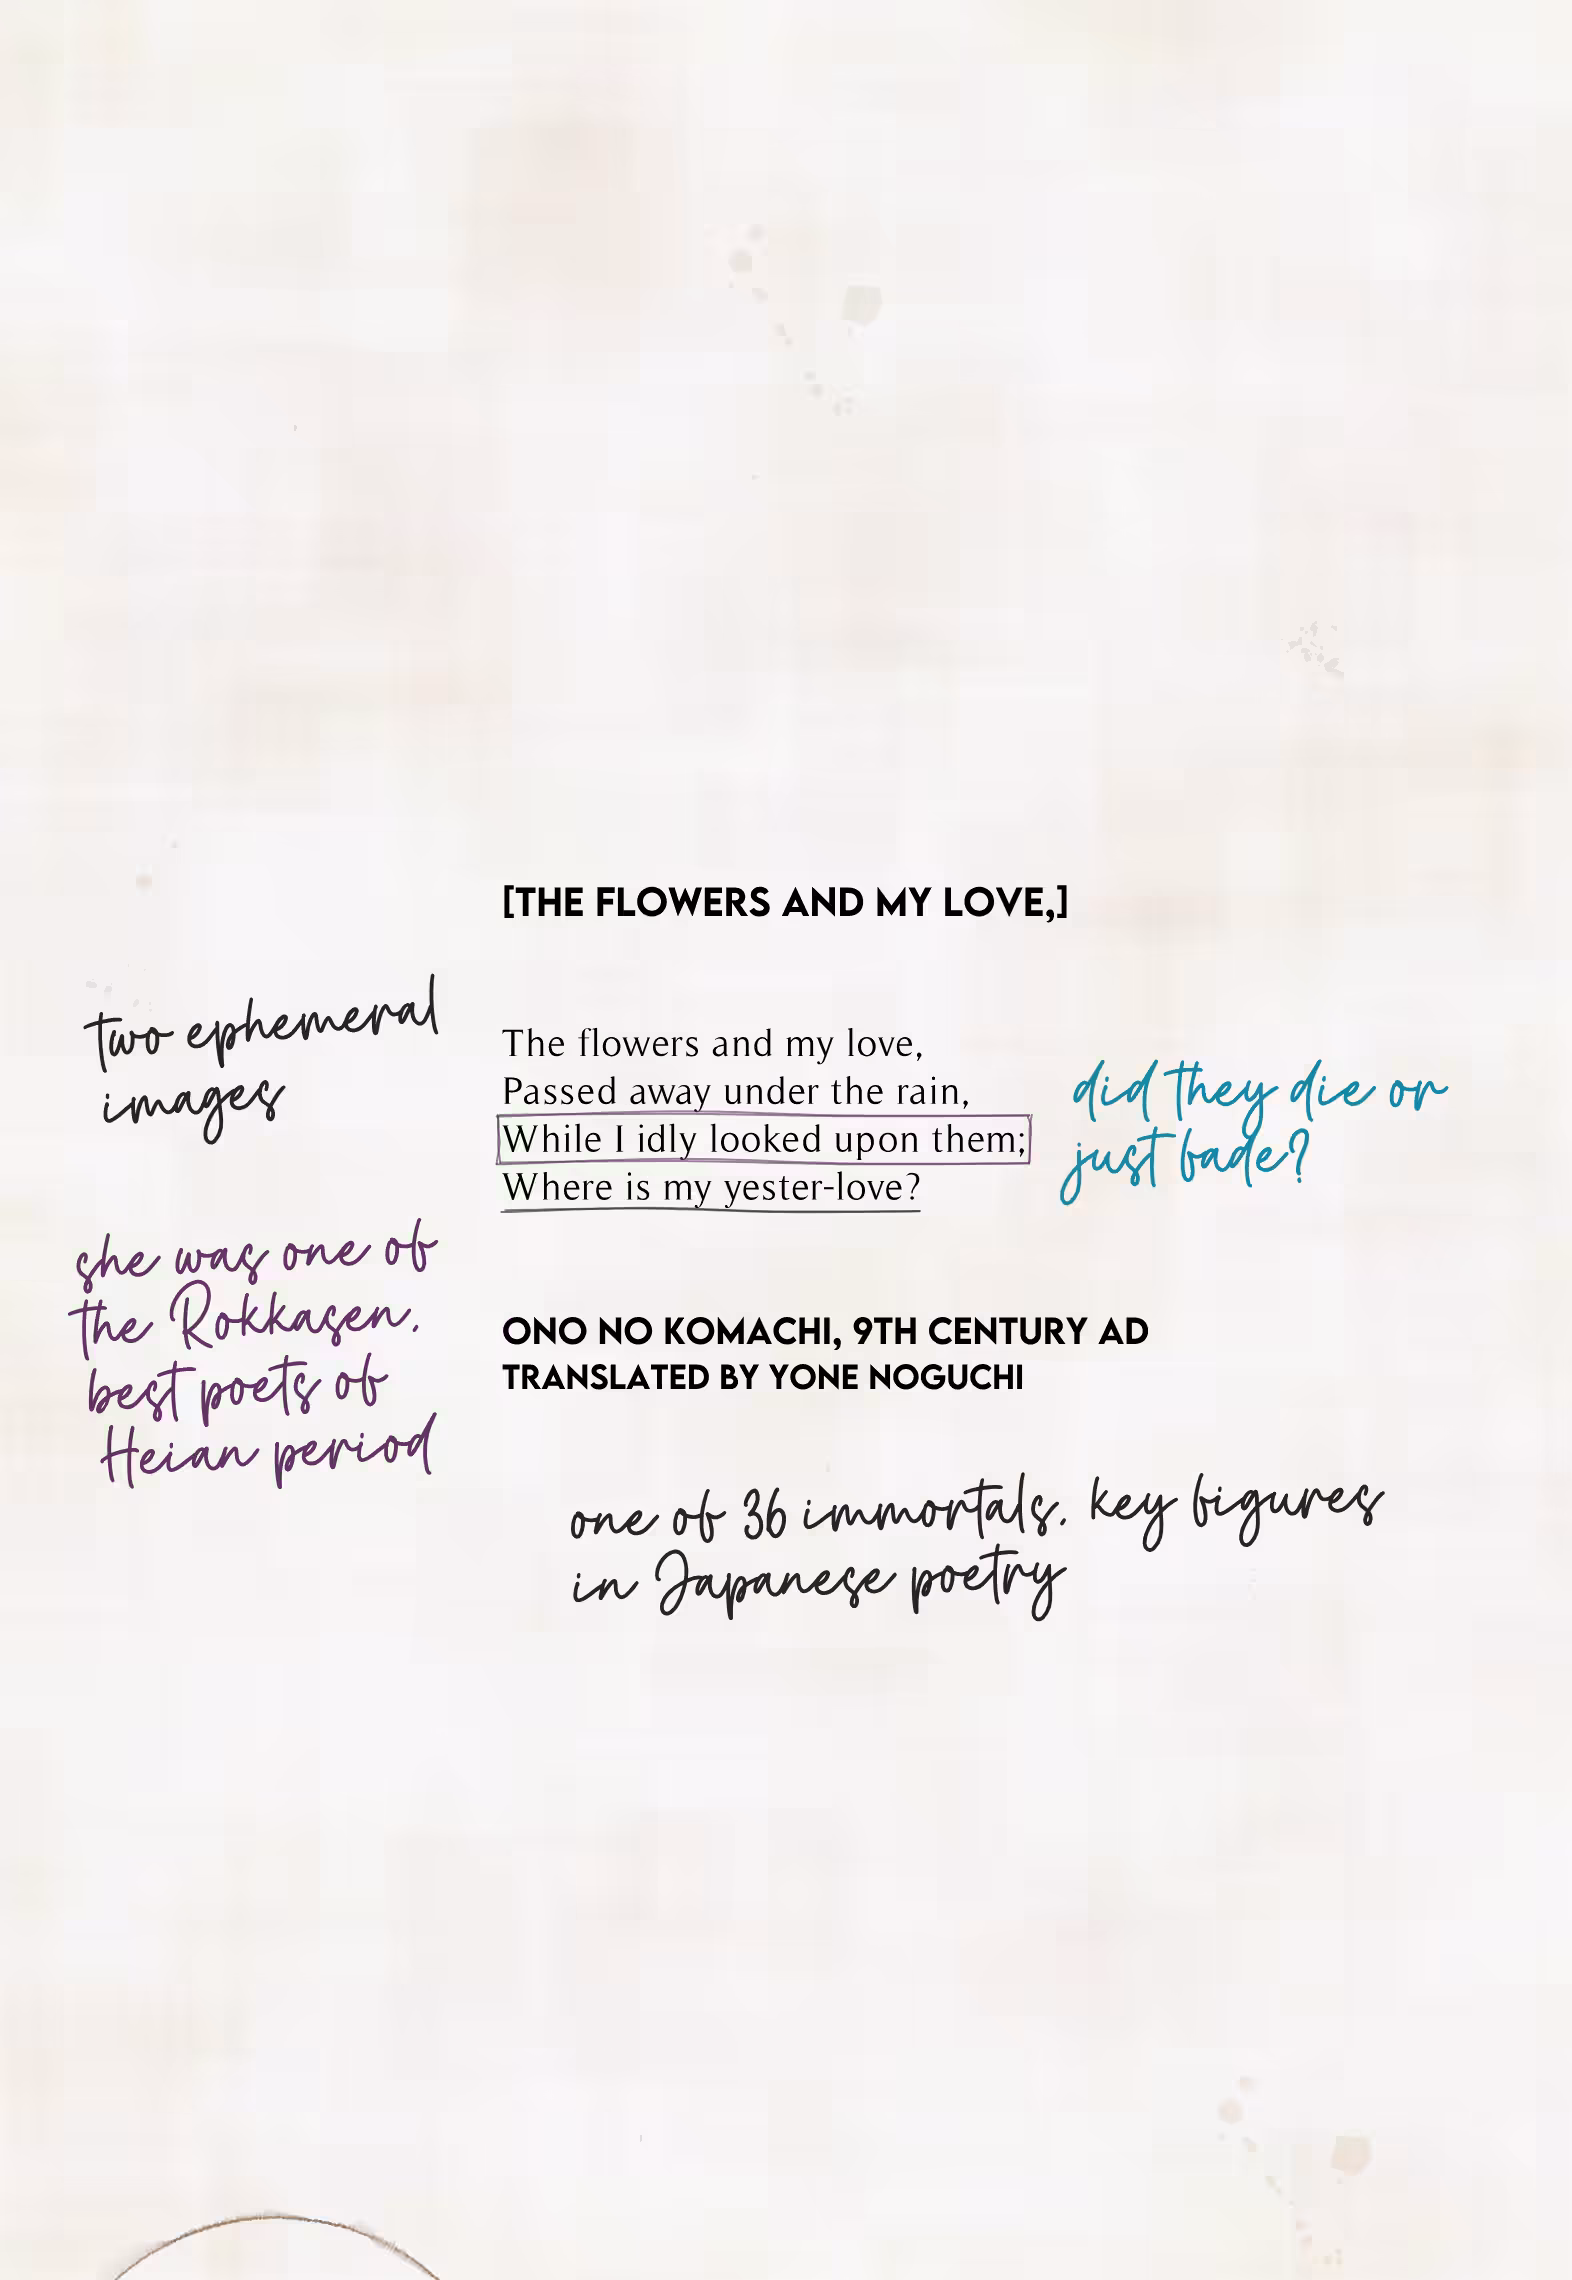 [THE FLOWERS AND MY LOVE,]
two ephemeral
images
The flowers and my love,
Passed away under the rain,
While I idly looked upon them;
Where is my yester-love?
did they die or
just fade?
she was one of
the Rokkasen,
best poets of
Heian period
ONO NO KOMACHI, 9TH CENTURY AD
TRANSLATED BY YONE NOGUCHI
one of 36 immortals, key figures
in Japanese poetry